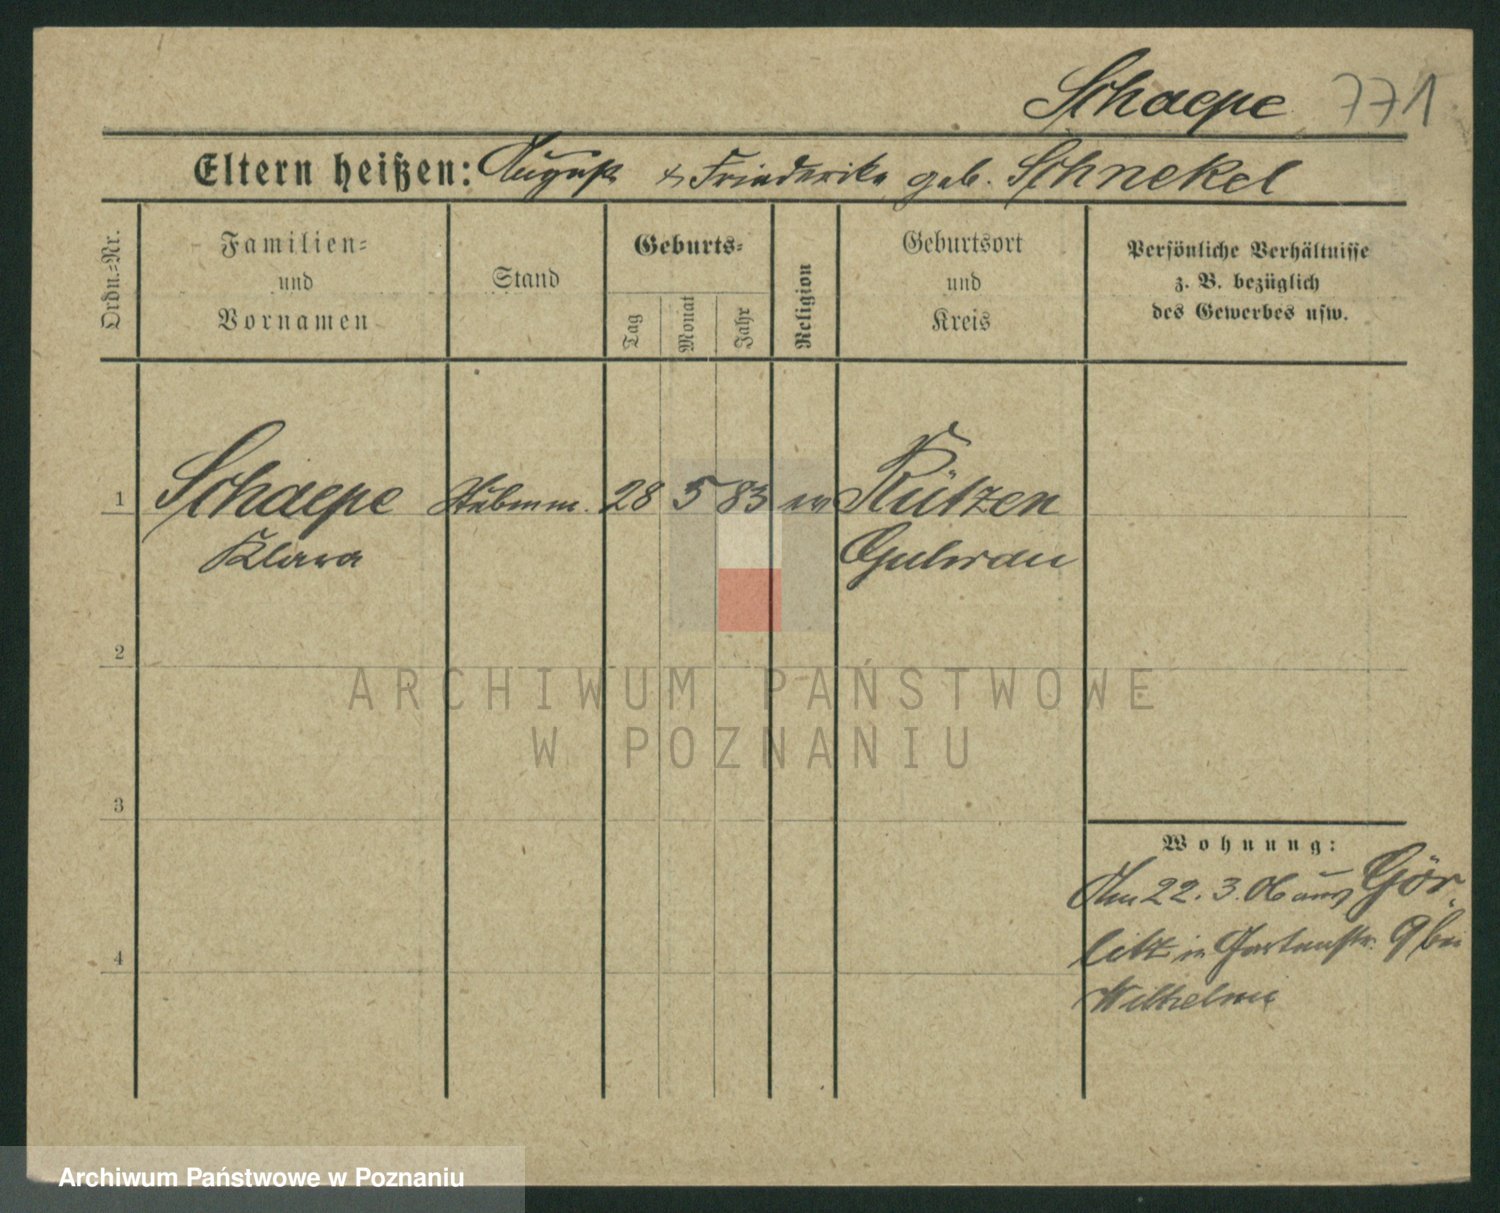 Schaepe 771
Eltern heißen: August & Friederike geb. Schnekel
Ordn.=Nr.
Familien=
und
Vornamen
Stand
Geburts=
Tag
Monat
Jahr
Religion
Geburtsort
und
Kreis
Persönliche Verhältnisse
z. B. bezüglich
des Gewerbes usw.
1 Schaepe Stubenm. 28 5 83 ev Kützen
Klara Guhrau
2
3
4
Wohnung:
Am 22. 3. 06 aus Gör
litz in Gartenstr. 9 bei
Wilhelmi
ARCHIWUM PAŃSTWOWE
W POZNANIU
Archiwum Państwowe w Poznaniu